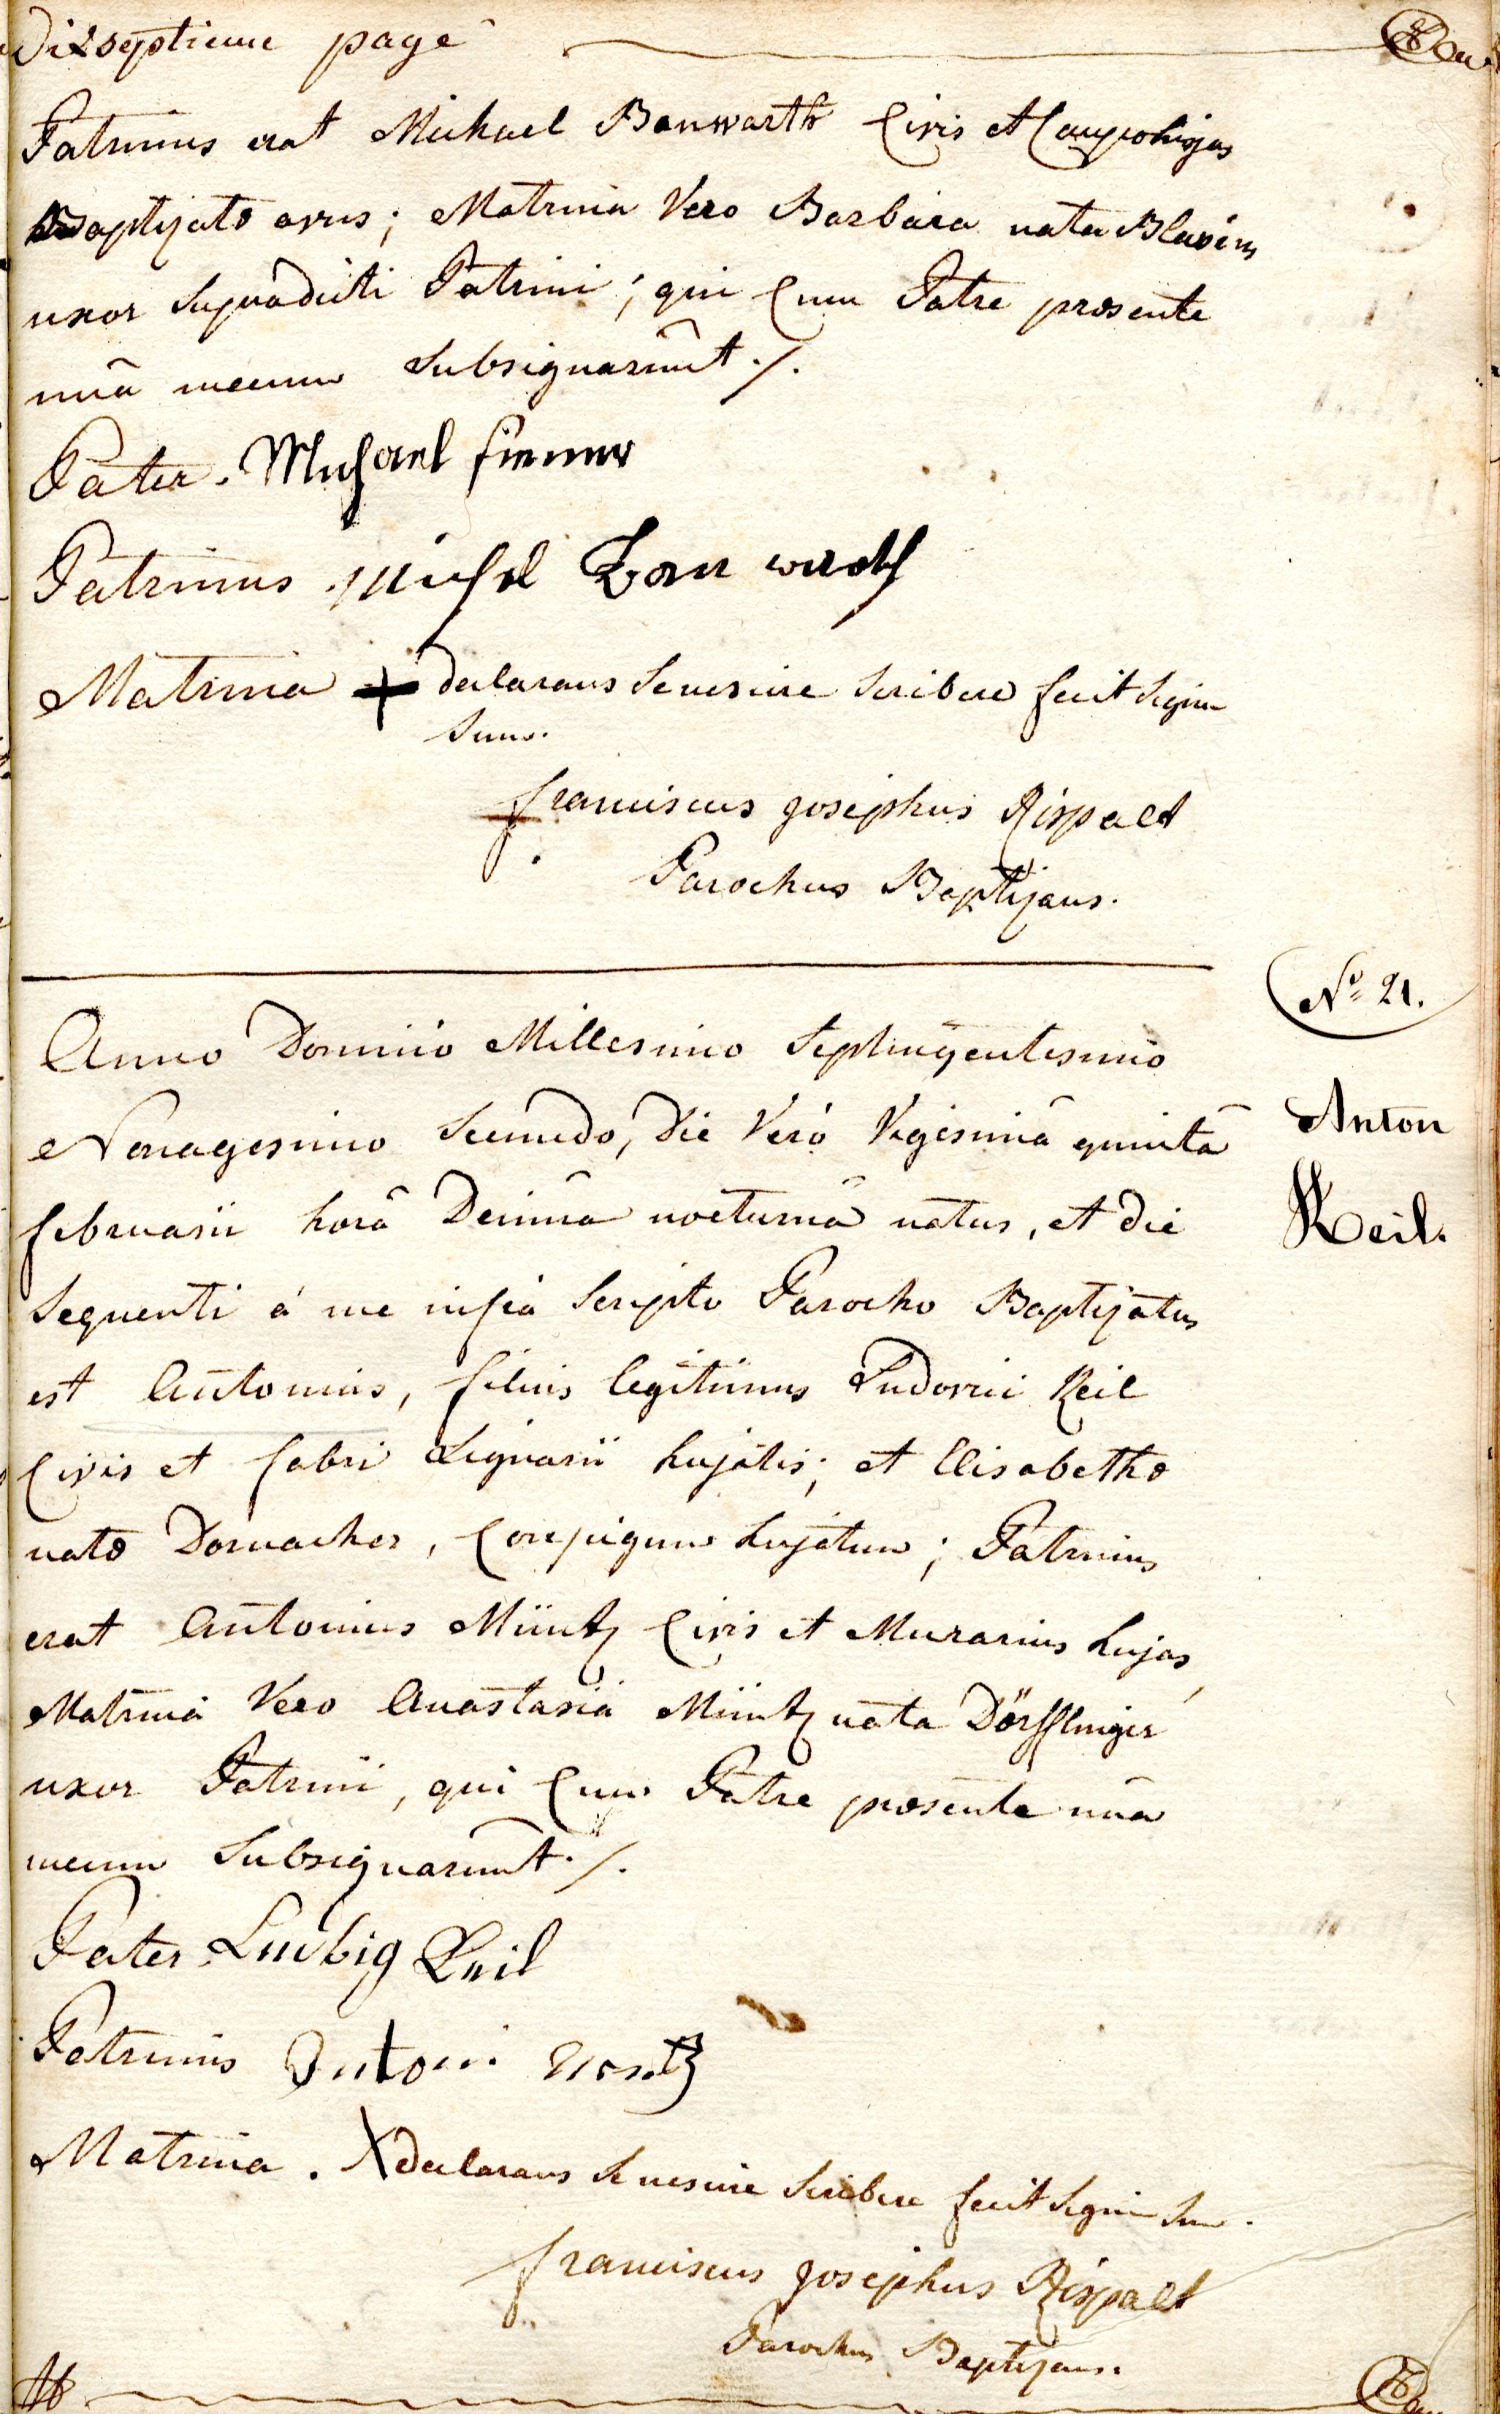 Dixseptieme page
Patrinus erat Michael Banwarth Civis et Caupo hujas
Baptizatæ avus; Matrina Vero Barbara nata
uxor supradicti Patrini; qui Cum Patre præsente
unâ mecum Subsignarunt ./.
Pater. Michael
Patrinus Michel Banwarth
Matrina + declarans se nescire scribere fecit signum
suum.
franciscus josephus Rispalt
Parochus Baptizans.
N° 21.
Anton
Keil.
Anno Domini Millesimo Septingentesimo
Nonagesimo Secundo, die Verò Vigesimâ quintâ
februarii horâ Decimâ nocturnâ natus, et die
Sequenti à me infra Scripto Parocho Baptizatus
est Antonius, filius legitimus Ludovici Keil
Civis et fabri Lignarii hujatis; et Elisabethæ
natæ Dornacher, Conjugum hujatum; Patrinus
erat Antonius Müntz Civis et Murarius hujas,
Matrina Vero Anastasia Müntz nata Dörfflinger
uxor Patrini, qui Cum Patre præsente unâ
mecum Subsignarunt ./.
Pater Ludwig Keil
Patrinus Antoni
Matrina. X declarans se nescire scribere fecit signum suum.
franciscus josephus Rispalt
Parochus Baptizans.